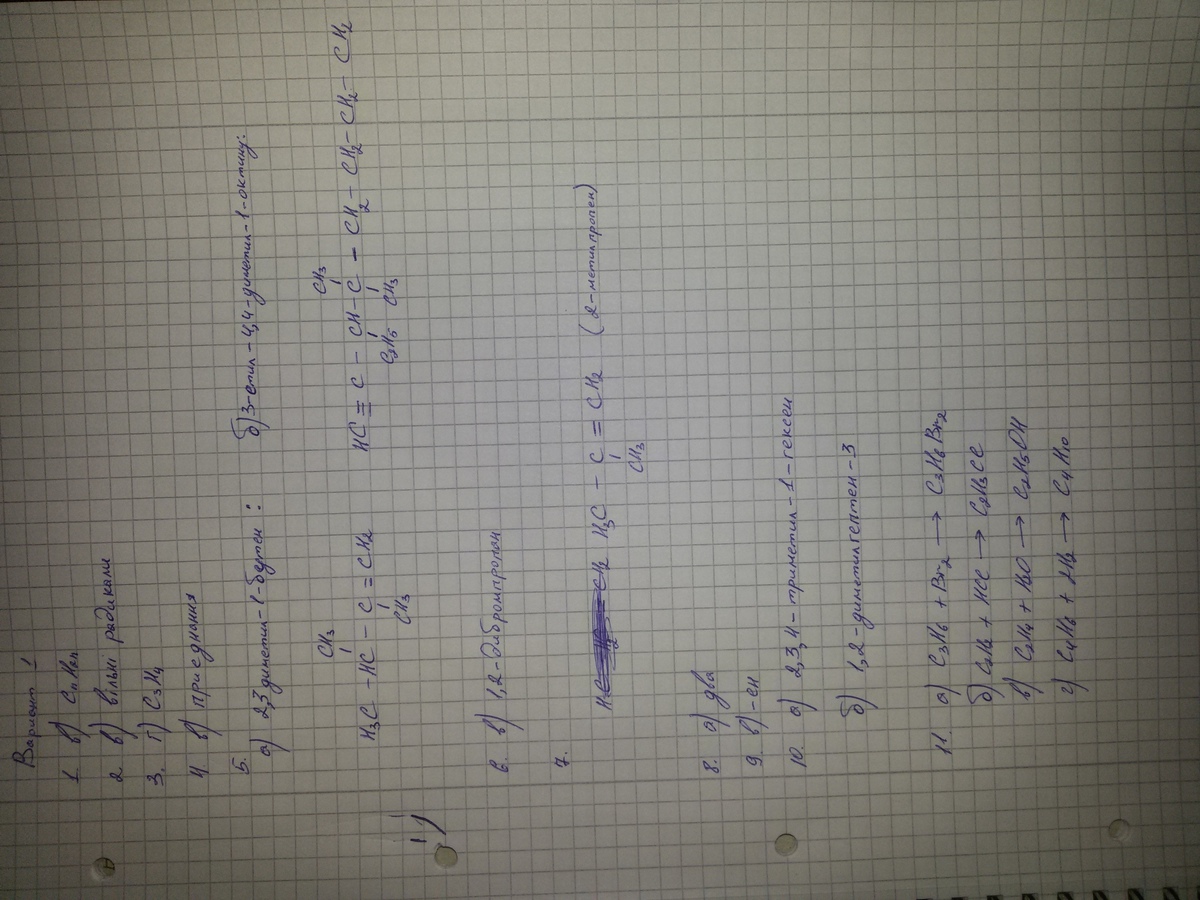 Вариант 1
1. в) CnH2n
2. в) вільні радикали
3. г) C3H4
4. в) приєднання
5.
а) 2,3диметил-1-бутен: б) 3-етил-4,4-диметил-1-октину:
CH3 CH3
H3C - HC - C = CH2 HC ≡ C - CH - C - CH2 - CH2 - CH2 - CH2
CH3 C2H5 CH3
6. в) 1,2-дибромпропан
7.
CH2 H3C - C = CH2 (2-метилпропен)
CH3
8. а) два
9. в) -ен
10. а) 2,3,4-триметил-1-гексен
б) 1,2-диметилгептен-3
11. а) C3H6 + Br2 → C3H6Br2
б) C2H2 + HCl → C2H3Cl
в) C2H4 + H2O → C2H5OH
г) C4H8 + H2 → C4H10